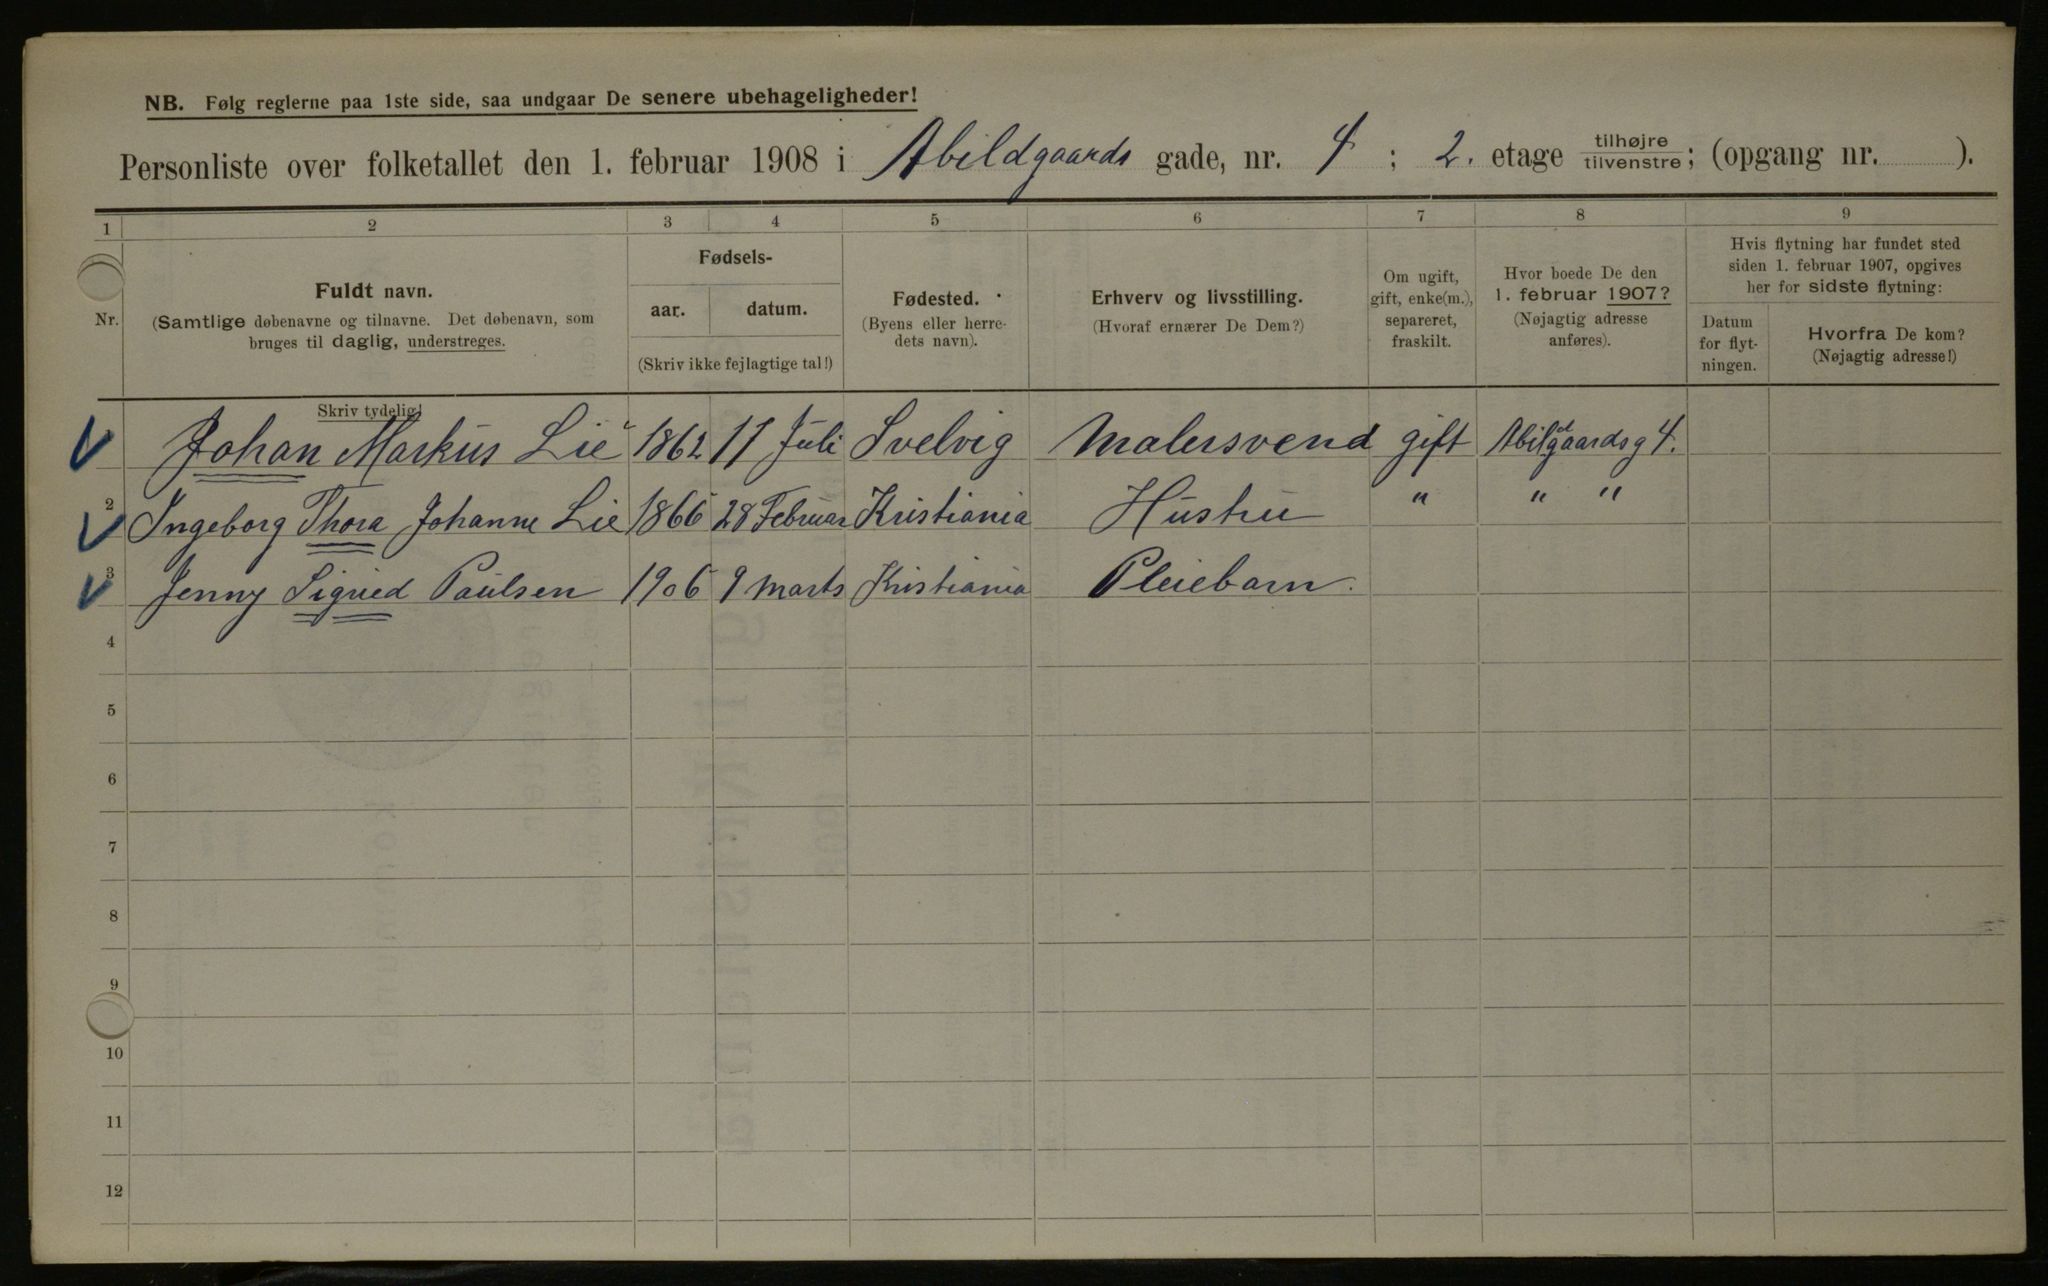 NB. Følg reglerne paa 1ste side, saa undgaar De senere ubehageligheder!
Personliste over folketallet den 1. februar 1908 i Abildgaards gade, nr. 4 ; 2. etage tilhøjre tilvenstre; (opgang nr. ).
1 2 3 4 5 6 7 8 9
Nr.
Fuldt navn.
(Samtlige døbenavne og tilnavne. Det døbenavn, som
bruges til daglig, understreges.
Fødsels-
aar. datum.
(Skriv ikke fejlagtige tal!)
Fødested.
(Byens eller herre-
dets navn).
Erhverv og livsstilling.
(Hvoraf ernærer De Dem?)
Om ugift,
gift, enke(m.),
separeret,
fraskilt.
Hvor boede De den
1. februar 1907?
(Nøjagtig adresse
anføres).
Hvis flytning har fundet sted
siden 1. februar 1907, opgives
her for sidste flytning:
Datum
for flyt-
ningen.
Hvorfra De kom?
(Nøjagtig adresse!)
Skriv tydelig!
Johan Markus Lie 1862 17 Juli Svelvig Malersvend gift Abildgaardsg 4.
2 Ingeborg Thora Johanne Lie 1866 28 Februar Kristiania Hustru " " "
3 Jenny Sigried Paulsen 1906 9 Marts Kristiania Pleiebarn.
4
5
6
7
8
9
10
11
12